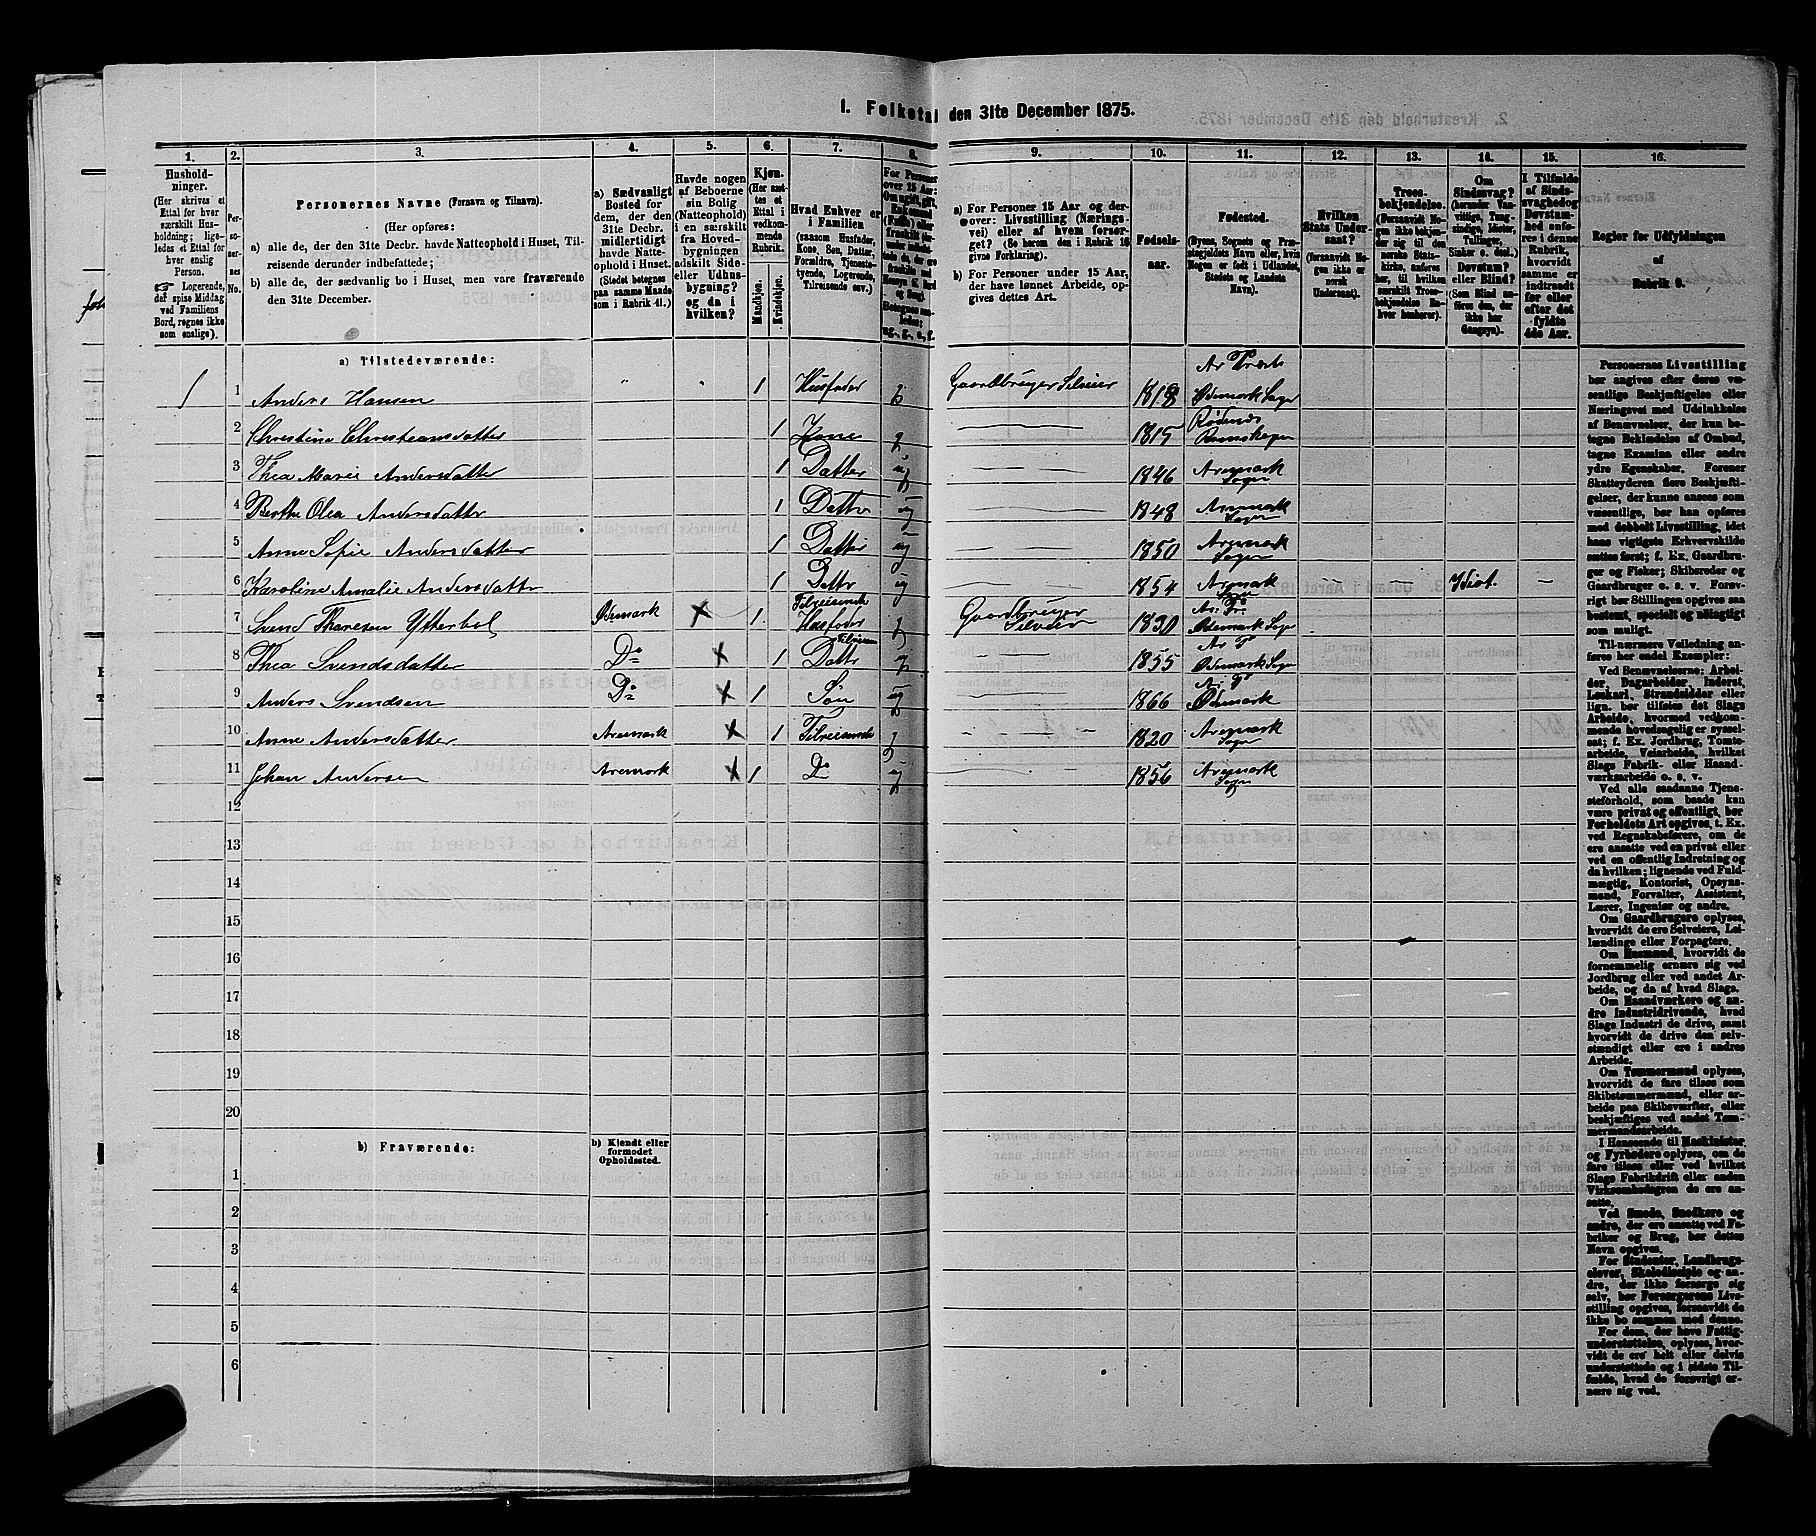 1. Folketal den 31te December 1875.
1. 2. 3. 4. 5. 6. 7. 8. 9. 10. 11. 12. 13. 14. 15. 16.
Hushold-
ninger.
(Her skrives et
Ettal for hver
særskilt Hus-
holdning; lige-
ledes et Ettal for
hver enslig
Person.
☞ Logerende,
der spise Middag
ved Familiens
Bord, regnes ikke
som enslige).
Per-
so-
ner-
nes
No.
Personernes Navne (Fornavn og Tilnavn).
(Her opføres:
a) alle de, der den 31te Decbr. havde Natteophold i Huset, Til-
reisende derunder indbefattede;
b) alle de, der sædvanlig bo i Huset, men vare fraværende
den 31te December.
a) Sædvanligt
Bosted for
dem, der den
31te Decbr.
midlertidigt
havde Natte-
ophold i Huset.
(Stedet betegnes
paa samme Maade
som i Rubrik 11.)
Havde nogen
af Beboerne
sin Bolig
(Natteophold)
i en særskilt
fra Hoved-
bygningen
adskilt Side-
eller Udhus-
bygning?
og da i
hvilken?
Kjøn.
(Her sæt-
tes et
Ettal i
vedkom-
mende
Rubrik.
Mandkjøn.
Kvindekjøn.
Hvad Enhver er
i Familien
(saasom Husfader,
Kone, Søn, Datter,
Forældre, Tjeneste-
tyende, Logerende,
Tilreisende osv.)
a) For Personer 15 Aar og der-
over: Livsstilling (Nærings-
vei) eller af hvem forsør-
get? (Se herom den i Rubrik 16
givne Forklaring).
b) For Personer under 15 Aar,
der have lønnet Arbeide, op-
gives dettes Art.
Fødsels-
aar.
Fødested.
(Byens, Sognets og Præ-
stegjeldets Navn eller, hvis
Nogen er født i Udlandet,
Stedets og Landets
Navn).
Hvilken
Stats Under-
saat?
(forsaavidt No-
gen ikke er
norsk
Undersaat).
Troes-
bekjendelse.
(Forsaavidt No-
gen ikke bekjen-
der sig til den
norske Stats-
kirke, anføres
her, til hvilken
særskilt Troes-
bekjendelse En-
hver henhører).
Om
Sindssvag?
(herunder Van-
vittige, Tung-
sindige, Idioter,
Tullinger,
Sinker o. desl.)
Døvstum?
eller Blind?
(Som Blind an-
føres den, der
ikke har
Gangsyn).
I Tilfælde
af Sinds-
svaghed og
Døvstum-
hed anfø-
res i denne
Rubrik,
hvorvidt
samme er
indtraadt
før eller
efter det
fyldte
4de Aar.
Regler for Udfyldningen
af
Rubrik 9.
a) Tilstedeværende:
1 1 Anders Hansen 1 Husfader Gaardbruger Selveier 1818 Ødemark Sogn
2 Christine Christiansdatter 1 Kone 1815 Rødenes
3 Thea Marie Andersdatter 1 Datter 1846 Aremark Sogn
4 Berthe Olea Andersdatter 1 Datter 1848 Aremark Sogn
5 Anne Sofie Andersdatter 1 Datter ug 1850 Aremark Sogn
6 Karoline Amalie Andersdatter 1 Datter ug 1854 Aremark Sogn Idiot.
7 Svend Ytterbøl Ødemark × 1 Tilreisende Husfader Gaardbruger Selveier 1830 Ødemark Sogn
8 Thea Svendsdatter Do × 1 Tilreisende Datter 1855 Ødemark Sogn
9 Anders Svendsen Do × 1 Søn ug 1866 Ødemark
10 Anne Andersdatter Aremark × 1 Tilreisende 1820 Aremark Sogn
11 Johan Andersen Aremark × 1 Do ug 1856 Aremark Sogn
12
13
14
15
16
17
18
19
20
b) Fraværende:
b) Kjendt eller
formodet
Opholdssted.
1
2
3
4
5
6
Personernes Livsstilling
bør angives efter deres væ-
sentlige Beskjæftigelse eller
Næringsvei med Udelukkelse
af Benævnelser, der kun be-
tegne Beklædelse af Ombud,
tagne Examina eller andre
ydre Egenskaber. Forener
Skatteyderen flere Beskjæfti-
gelser, der kunne ansees som
væsentlige, bør han opføres
med dobbelt Livsstilling, idet
hans vigtigste Erhvervskilde
sættes først; f. Ex. Gaardbru-
ger og Fisker; Skibsreder og
Gaardbruger o. s. v. Forøv-
rigt bør Stillingen opgives saa
bestemt, specielt og nøiagtigt
som muligt.
Til nærmere Veiledning an-
føres her endel Exempler:
Ved Benævnelserne: Arbei-
der, Dagarbeider, Inderst,
Løskarl, Strandsidder eller
lign. bør tilføies det Slags
Arbeide, hvormed vedkom-
mende hovedsagelig er syssel-
sat; f. Ex. Jordbrug, Tomte-
arbeide, Veiarbeide, hvilket
Slags Fabrik- eller Haand-
værksarbeide o. s. v.
Ved alle saadanne Tjene-
steforhold, som baade kan
være privat og offentligt, bør
Forholdets Art opgives, t. Ex.
ved Regnskabsførere, om de
ere ansatte ved en privat eller
ved en offentlig Indretning og
da hvilken; lignende ved Fuld-
mægtig, Kontorist, Opsyns-
mand, Forvalter, Assistent,
Lærer, Ingeniør og andre.
Om Gaardbrugere oplyses,
hvorvidt de ere Selveiere, Lei-
lændinge eller Forpagtere.
Om Husmænd, hvorvidt de
fornemmelig ernære sig ved
Jordbrug eller ved andet Ar-
beide, og da af hvad Slags.
Om Haandværkere og an-
dre Industridrivende, hvad
Slags Industri de drive, samt
hvorvidt de drive den selv-
stændigt eller ere i andres
Arbeide.
Om Tømmermænd oplyses,
hvorvidt de fare tilsøs som
Skibstømmermænd, eller ar-
beide paa Skibsværfter, eller
beskjæftiges ved andet Tøm-
mermandsarbeide.
I Henseende til Maskinister
og Fyrbødere oplyses, om de
fare tilsøs eller ved hvilket
Slags Fabrikdrift eller anden
Virksomhedsgren de ere an-
satte.
Ved Smede, Snedkere og
andre, der ere ansatte ved Fa-
briker og Brug, bør dettes
Navn opgives.
For Studenter, Landbrugs-
elever, Skoledisciple og an-
dre, der ikke forsørge sig
selv, bør Forsørgerens Livs-
stilling opgives, forsaavidt de
ikke bo sammen med denne.
For dem, der have Fattig-
understøttelse, oplyses, hvor-
vidt de ere helt eller delvis
understøttede og i sidste Til-
fælde, hvad de forøvrigt er-
nære sig ved.